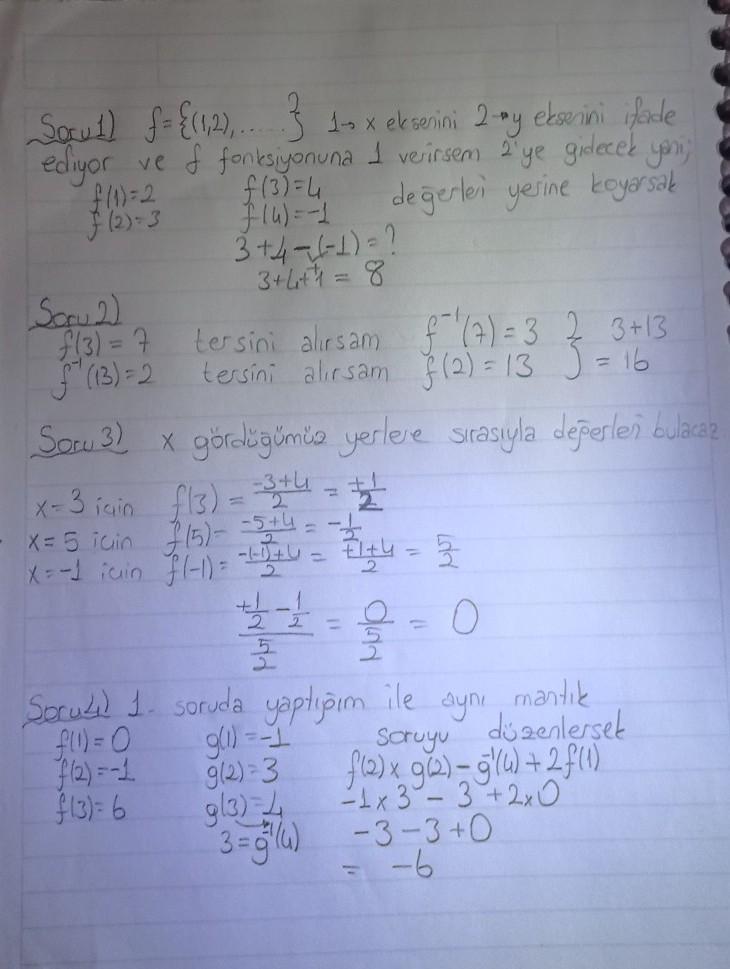 Soru 1) f={(1,2), ......} 1→ x eksenini 2→y eksenini ifade
ediyor ve f fonksiyonuna 1 verirsem 2'ye gidecek yani;
f(1)=2 f(3)=4 değerleri yerine koyarsak
f(2)=3 f(4)=-1
3+4-(-1)=?
3+4+1 = 8
Soru 2)
f(3) = 7 tersini alırsam f⁻¹(7) = 3 } 3+13
f⁻¹(13)=2 tersini alırsam f(2) = 13 } = 16
Soru 3) x gördüğümüz yerlere sırasıyla değerleri bulacaz
x=3 için f(3) = -3+4/2 = +1/2
x=5 için f(5)= -5+4/2 = -1/2
x=-1 için f(-1)= -(-1)+4/2 = +1+4/2 = 5/2
+1/2 - 1/2 / 5/2 = 0 / 5/2 = 0
Soru 4) 1. soruda yaptığım ile aynı mantık
f(1)=0 g(1)=-1 soruyu düzenlersek
f(2)=-1 g(2)=3 f(2) x g(2) - g⁻¹(4) + 2f(1)
f(3)=6 g(3)=4 -1 x 3 - 3 + 2x0
3=g⁻¹(4) -3-3+0
= -6